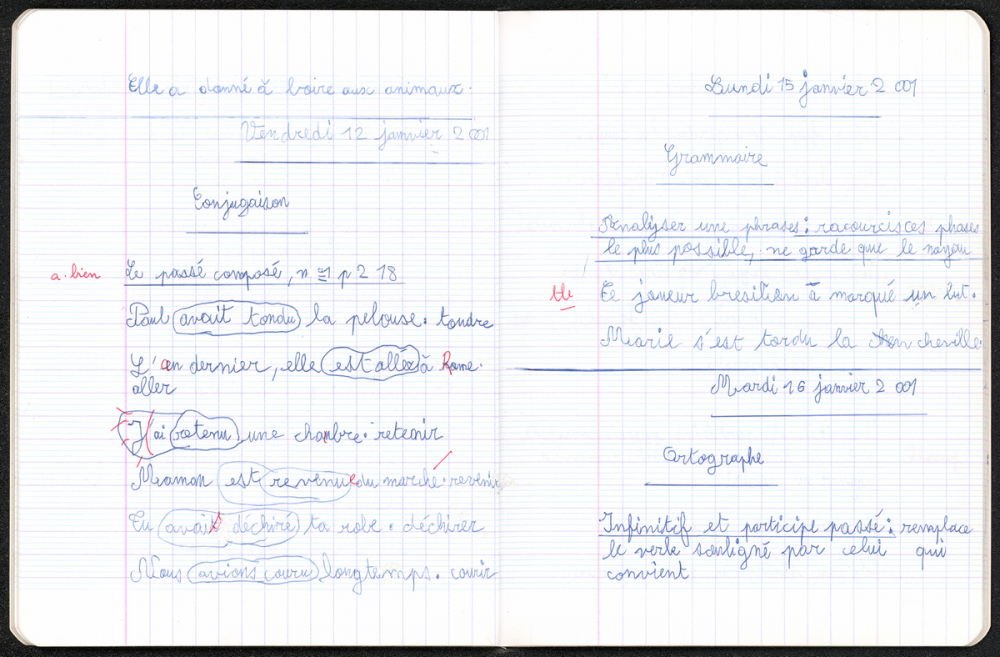 Elle a donné à boire aux animaux.
Vendredi 12 janvier 2001
Conjugaison
a. bien
Le passé composé, n°1 p 218
Paul avait tondu la pelouse. tondre
L'an dernier, elle est allée à Rome.
aller
J'ai retenu une chambre. retenir
Maman est revenue du marché. revenir
Tu avais déchiré ta robe. déchirer
Nous avions couru longtemps. courir
Lundi 15 janvier 2001
Grammaire
Analyser une phrases : racourcis ces phases
le plus possible, ne garde que le noyau
tb
Le joueur bresilien a marqué un but.
Marie s'est tordu la cheville.
Mardi 16 janvier 2001
Ortographe
Infinitif et participe passé : remplace
le verbe souligné par celui qui
convient